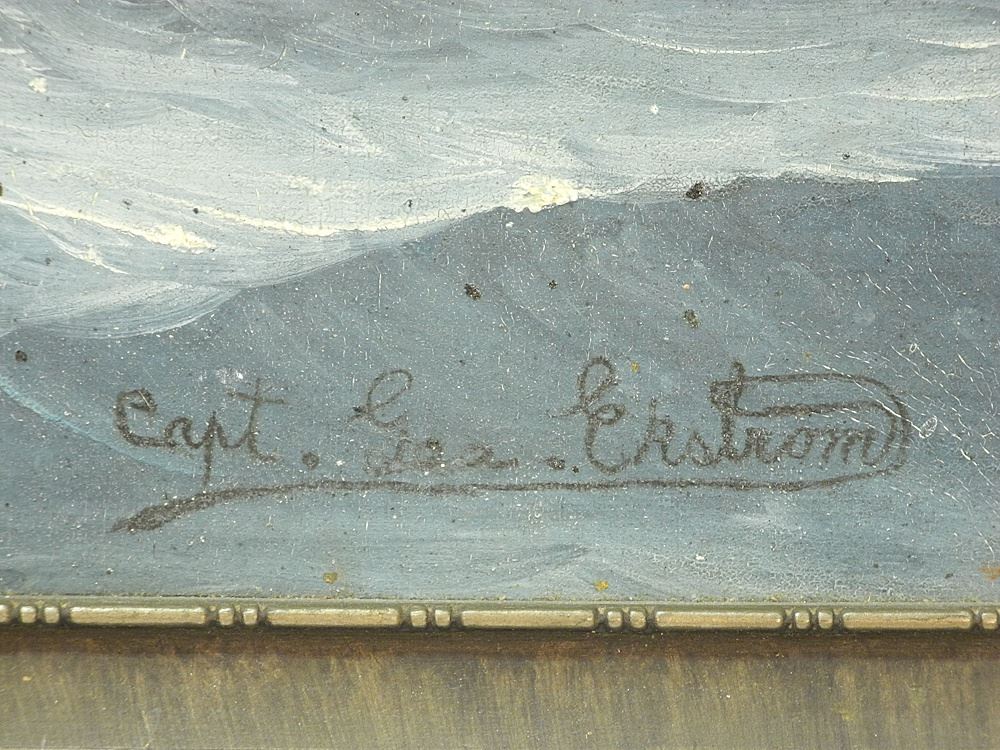 Capt. Geo. Ekstrom